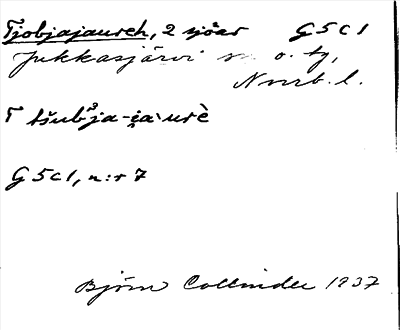 Tjobjajaureh, 2 sjöar G5c1
Jukkasjärvi sn o. tg,
Norrb. l.
T tšub̊ja-i̯a·urè
G5c1, n:r 7
Björn Collinder 1937